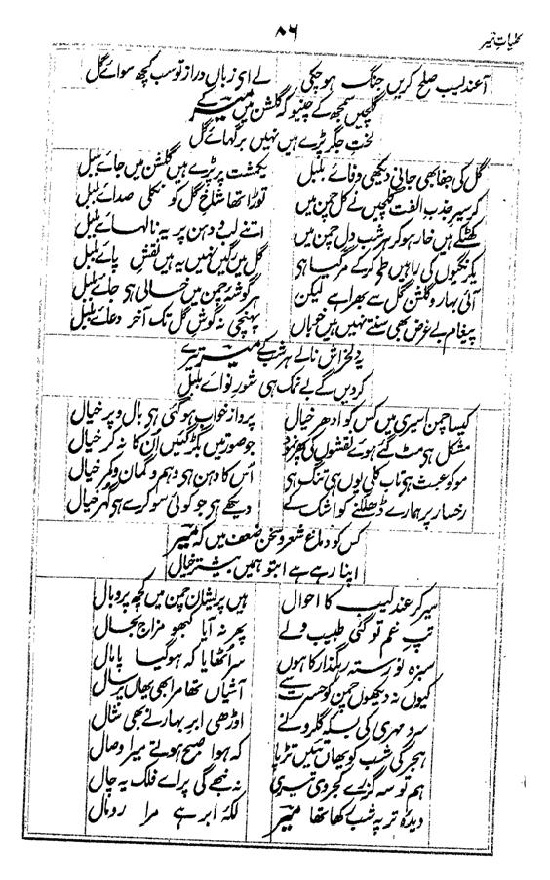 کلیات میر
۸۶
آ عندلیب صلح کریں جنگ ہوچکی لے اے زباں دراز تو سب کچھ سوائے گل
گلچیں سمجھ کے چنیو کہ گلشن میں میر کے
لخت جگر پڑے ہیں نہیں برگہائے گل
گل کی جفا بھی جانی دیکھی وفائے بلبل یکمشت پر پڑے ہیں گلشن میں جائے بلبل
کر سیر جذب الفت گلچیں نے کل چمن میں توڑا تھا شاخ گل کو نکلی صدائے بلبل
کھٹکے ہیں خار ہوکر ہر شب دل چمن میں اتنے لب و دہن پر یہ نالہائے بلبل
یکرنگیوں کی راہیں طے کرکے مرگیا ہی گل میں رگیں نہیں یہ ہیں نقش پائے بلبل
آئی بہار و گلشن گل سے بھرا ہے لیکن ہر گوشۂ چمن میں خالی ہی جائے بلبل
پیغام بے غرض بھی سنتے نہیں ہیں خوباں پہنچی نہ گوش گل تک آخر دعائے بلبل
یہ دلخراش نالے ہر شب کے میر تیرے
کر دیں گے بے نمک ہی شور نوائے بلبل
کیسا چمن اسیری میں کس کو ادھر خیال پرواز خواب ہوگئی ہی بال و پر خیال
مشکل ہی مٹ گئے ہوئے نقشوں کی پھر نمود جو صورتیں بگڑ گئیں ان کا نہ کر خیال
مو کو عبث ہی تاب کلی یوں ہی تنگ ہی اس کا دہن ہی وہم و گمان و کمر خیال
رخسار پر ہمارے ڈھلکنے کو اشک کے دیکھے ہی جو کوئی سو کرے ہی گہر خیال
کس کو دماغ شعر و سخن ضعف میں کہ میر
اپنا رہے ہے ابتو ہمیں بیشتر خیال
سیر کر عندلیب کا احوال ہیں پریشاں چمن میں کچھ پر و بال
تپ غم تو گئی طبیب ولے پھر نہ آیا کبھو مزاج بحال
سبزہ نورستہ رہگذار کا ہوں سر اٹھایا کہ ہوگیا پامال
کیوں نہ دیکھوں چمن کو حسرت سے آشیاں تھا مرا بھی یھاں پرسال
سرد مہری کی بسکہ گلرو نے اوڑھی ابر بہار نے بھی شال
ہجر کی شب کو یھاں تئیں تڑپا کہ ہوا صبح ہوتے میرا وصال
ہم تو سہ گزرے کجروی تیری نہ نبھے گی پر اے فلک یہ چال
دیدۂ تر پہ شب رکھا تھا میر لکۂ ابر ہے مرا رومال